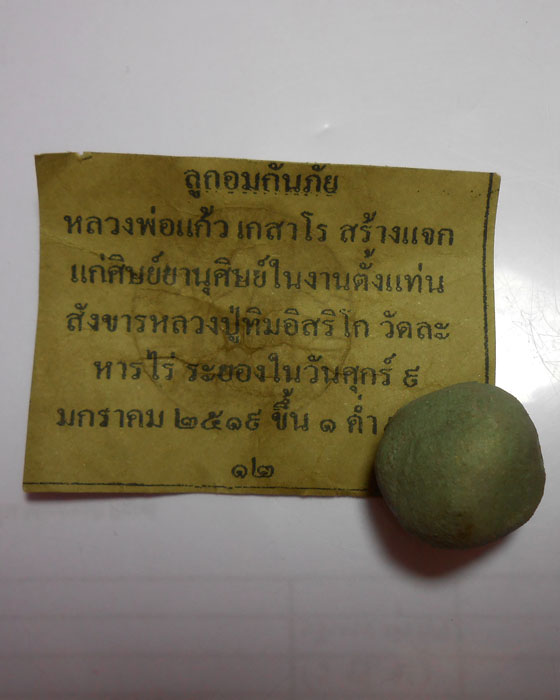 ลูกอมกันภัย
หลวงพ่อแก้ว เกสาโร สร้างแจก
แก่ศิษย์ยานุศิษย์ในงานตั้งแท่น
สังขารหลวงปู่ทิมอิสริโก วัดละ
หารไร่ ระยองในวันศุกร์ ๙
มกราคม ๒๕๑๙ ขึ้น ๑ ค่ำ
๑๒